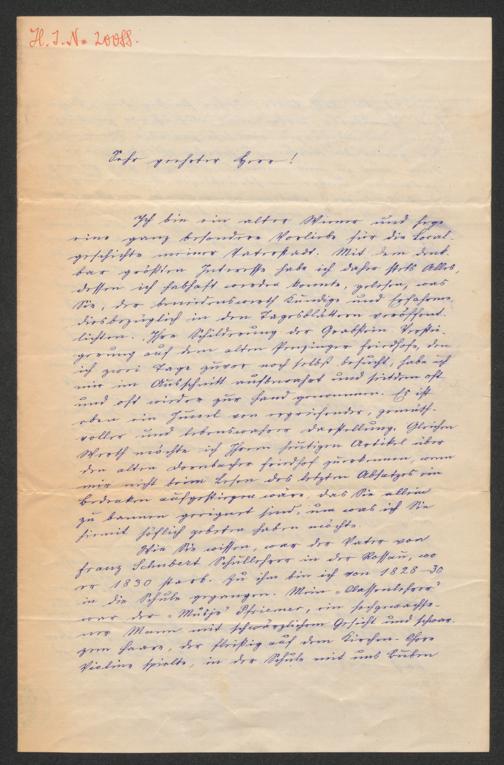 H. I. N. 20088.
Sehr geehrter Herr!
Ich bin ein alter Wiener und hege
eine ganz besondere Vorliebe für die Local-
geschichte meiner Vaterstadt. Mit dem denk-
bar größten Interesse habe ich daher stets Alles,
dessen ich habhaft werden konnte, gelesen, was
Sie, der beneidenswerth Kundige und Erfahrene,
diesbezüglich in den Tagesblättern veröffent-
lichten. Ihre Schilderung der Grabstein-Verstei-
gerung auf dem alten Penzinger Friedhofe, den
ich zwei Tage zuvor noch selbst besucht, habe ich
mir im Ausschnitt aufbewahrt und seitdem oft
und oft wieder zur Hand genommen. Es ist
eben ein Juwel von ergreifender, gemüth-
voller und lebenswahrer Darstellung. Gleichen
Werth möchte ich Ihrem heutigen Artikel über
den alten Dornbacher Friedhof zuerkennen, wenn
mir nicht beim Lesen des letzten Absatzes ein
Bedenken aufgestiegen wäre, das Sie allein
zu bannen geeignet sind, um was ich Sie
hiemit höflich gebeten haben möchte.
Wie Sie wissen, war der Vater von
Franz Schubert Schullehrer in der Rossau, wo
er 1830 starb. Zu ihm bin ich von 1828-30
in die Schule gegangen. Mein „Classenlehrer"
war der „Musje" , ein hochgewachse-
ner Mann mit schwärzlichem Gesicht und schwar-
zem Haare, der fleißig auf dem Kirchen-Chore
Violine spielte, in der Schule mit uns Buben